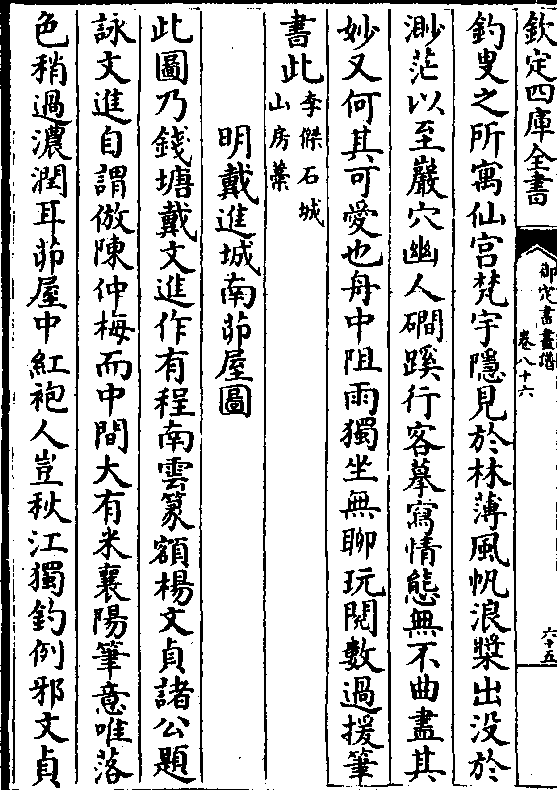 欽定四庫全書
御定書畫譜
卷八十六
六十五
釣叟之所寓仙宮梵宇隱見於林薄風帆浪槳出没於
渺茫以至巖穴幽人磵蹊行客摹寫情態無不曲盡其
妙又何其可愛也舟中阻雨獨坐無聊玩閱數過援筆
書此李傑石城山房藁
明戴進城南茆屋圖
此圖乃錢塘戴文進作有程南雲篆額楊文貞諸公題
詠文進自謂倣陳仲梅而中間大有米襄陽筆意唯落
色稍過濃潤耳茆屋中紅袍人豈秋江獨釣例邪文貞